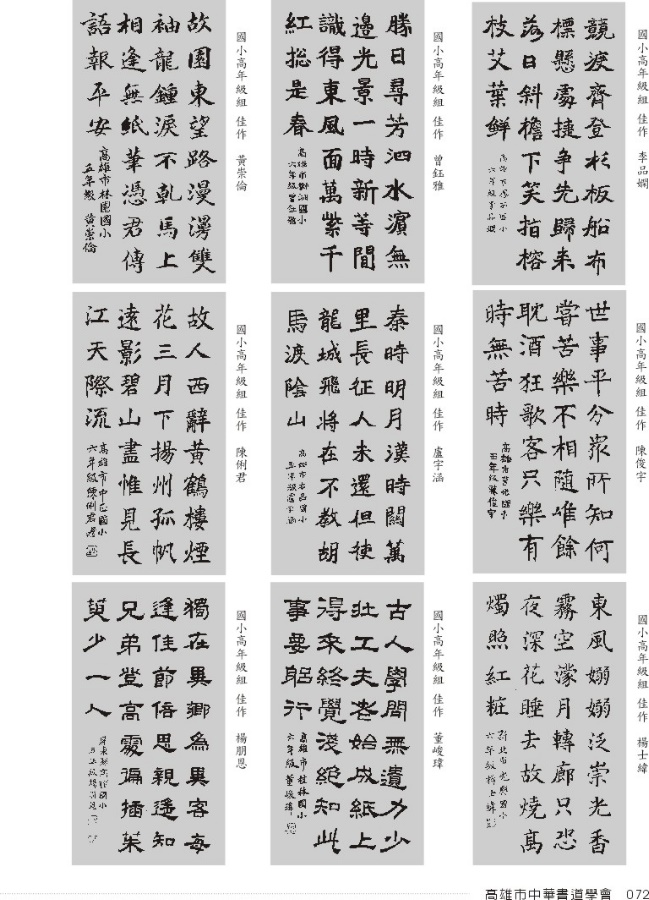 國小高年級組 佳作 李品嫻
競渡齊登杉板船布
標懸處捷爭先歸來
落日斜檐下笑指榕
枝艾葉鮮
六年級李品嫻
國小高年級組 佳作 曾鈺雅
勝日尋芳泗水濱無
邊光景一時新等閒
識得東風面萬紫千
紅総是春
高雄市獅湖國小
六年級曾鈺雅
國小高年級組 佳作 黃崇倫
故園東望路漫漫雙
袖龍鍾淚不乾馬上
相逢無紙筆憑君傳
語報平安
高雄市林園國小
五年級 黃崇倫
國小高年級組 佳作 陳俊宇
世事平分眾所知何
嘗苦樂不相隨唯餘
耽酒狂歌客只樂有
時無苦時
五年級陳俊宇
國小高年級組 佳作 盧宇涵
秦時明月漢時關萬
里長征人未還但使
龍城飛將在不教胡
馬渡陰山
五年級盧宇涵
國小高年級組 佳作 陳俐君
故人西辭黃鶴樓煙
花三月下揚州孤帆
遠影碧山盡惟見長
江天際流
高雄市中正國小
六年級陳俐君
國小高年級組 佳作 楊士緯
東風嫋嫋泛崇光香
霧空濛月轉廊只恐
夜深花睡去故燒高
燭照紅粧
六年級楊士緯
國小高年級組 佳作 董峻瑋
古人學問無遺力少
壯工夫老始成紙上
得來終覺淺絕知此
事要躬行
高雄市桂林國小
六年級 董峻瑋
國小高年級組 佳作 楊朋恩
獨在異鄉為異客每
逢佳節倍思親遙知
兄弟登高處徧插茱
萸少一人
高雄市中華書道學會 072